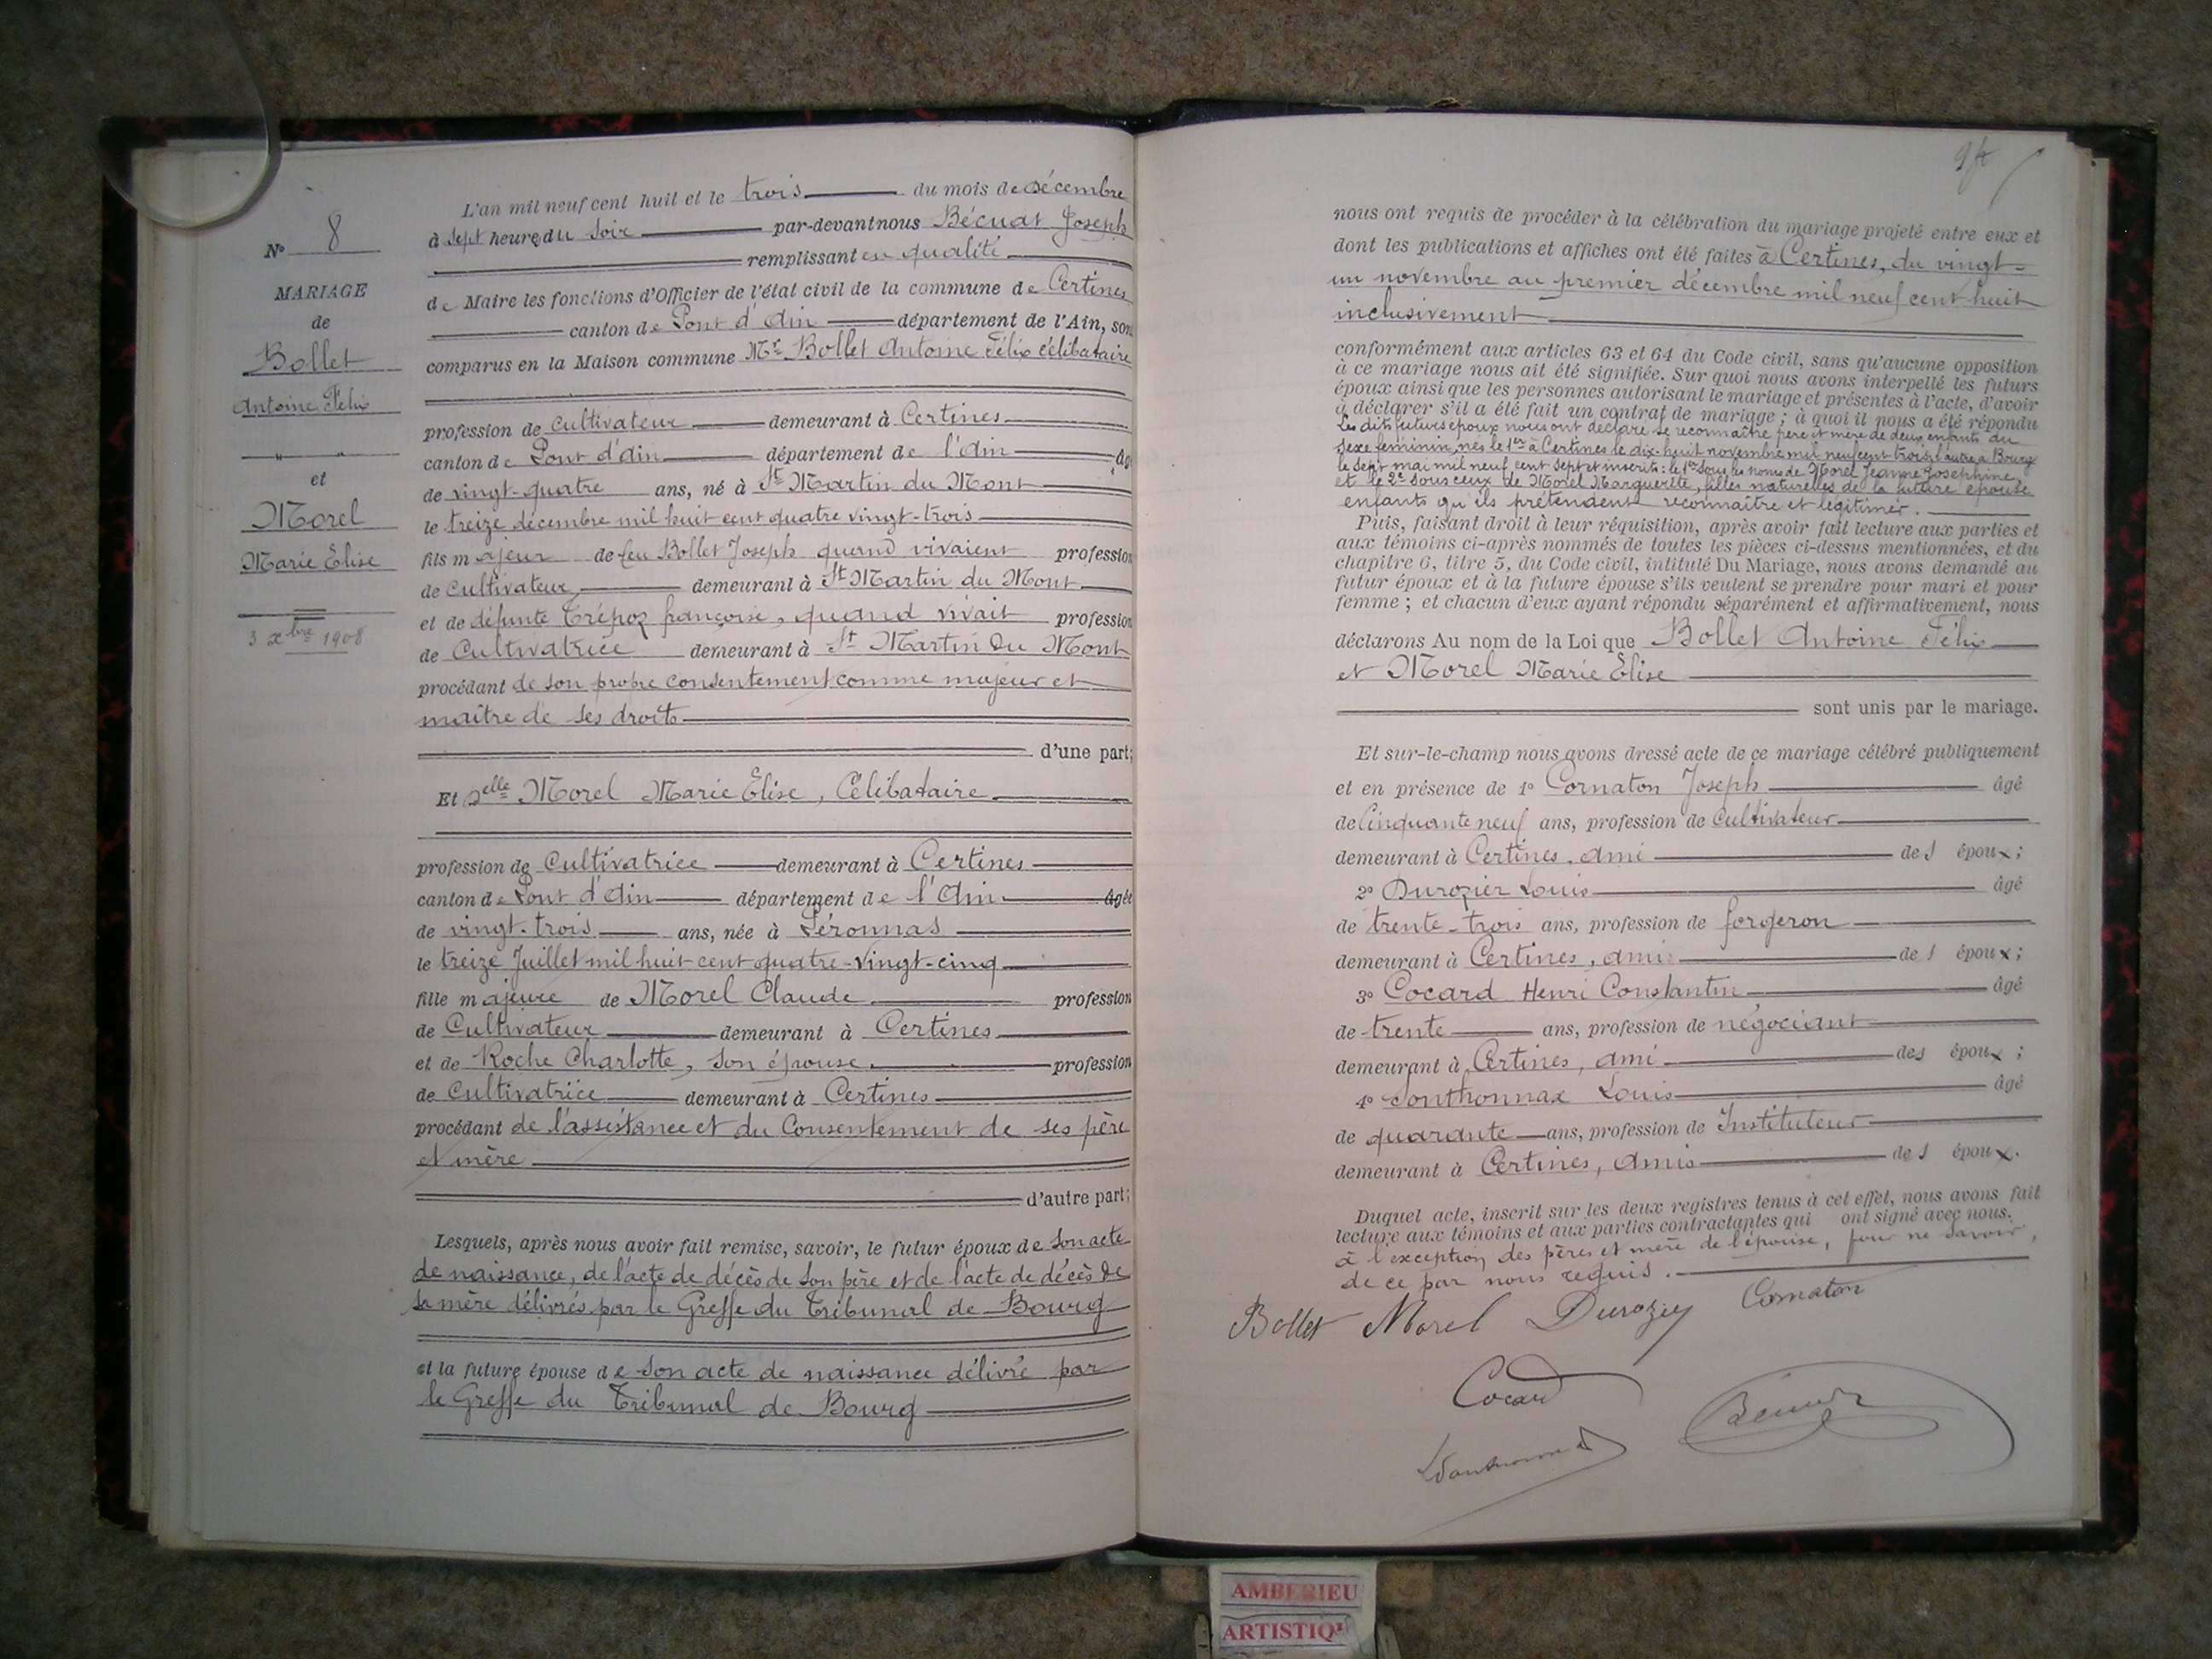 N° 8
MARIAGE
de
Bollet
Antoine Félix
et
Morel
Marie Élise
3 xbre 1908
L'an mil neuf cent huit et le trois du mois de décembre
à sept heures du soir par-devant nous Bécuat Joseph
remplissant en qualité
de Maire les fonctions d'Officier de l'état civil de la commune de Certines
canton de Pont d'Ain département de l'Ain, son
comparus en la Maison commune Mr Bollet Antoine Félix célibataire
profession de cultivateur demeurant à Certines
canton de Pont d'ain département de l'Ain âgé
de vingt-quatre ans, né à St Martin du Mont
le treize décembre mil huit cent quatre vingt-trois
fils majeur de feu Bollet Joseph quand vivaient profession
de cultivateur demeurant à St Martin du Mont
et de défunte Trépoz françoise, quand vivait profession
de Cultivatrice demeurant à St Martin du Mont
procédant de son propre consentement comme majeur et
maître de ses droits
d'une part;
Et Delle Morel Marie Élise, Célibataire
profession de Cultivatrice demeurant à Certines
canton de Pont d'Ain département de l'Ain âgée
de vingt-trois ans, née à Péronnas
le treize Juillet mil huit cent quatre-vingt-cinq
fille majeure de Morel Claude profession
de Cultivateur demeurant à Certines
et de Roche Charlotte, son épouse profession
de Cultivatrice demeurant à Certines
procédant de l'assistance et du Consentement de ses père
et mère
d'autre part;
Lesquels, après nous avoir fait remise, savoir, le futur époux de son acte
de naissance, de l'acte de décès de son père et de l'acte de décès de
sa mère délivrés par le Greffe du Tribunal de Bourg
et la future épouse de son acte de naissance délivré par
le Greffe du Tribunal de Bourg
nous ont requis de procéder à la célébration du mariage projeté entre eux et
dont les publications et affiches ont été faites à Certines, du vingt-
un novembre au premier décembre mil neuf cent huit
inclusivement
conformément aux articles 63 et 64 du Code civil, sans qu'aucune opposition
à ce mariage nous ait été signifiée. Sur quoi nous avons interpellé les futurs
époux ainsi que les personnes autorisant le mariage et présentes à l'acte, d'avoir
à déclarer s'il a été fait un contrat de mariage ; à quoi il nous a été répondu
Les dits futurs époux nous ont déclaré se reconnaître père et mère de deux enfants du
sexe féminin, nés le 1er à Certines le dix-huit novembre mil neuf cent trois l'autre à Bourg
le sept mai mil neuf cent sept et inscrits : le 1er sous les noms de Morel Jeanne Joséphine,
et le 2e sous ceux de Morel Marguerite, filles naturelles de la future épouse
enfants qu'ils prétendent reconnaître et légitimer.
Puis, faisant droit à leur réquisition, après avoir fait lecture aux parties et
aux témoins ci-après nommés de toutes les pièces ci-dessus mentionnées, et du
chapitre 6, titre 5, du Code civil, intitulé Du Mariage, nous avons demandé au
futur époux et à la future épouse s'ils veulent se prendre pour mari et pour
femme ; et chacun d'eux ayant répondu séparément et affirmativement, nous
déclarons Au nom de la Loi que Bollet Antoine Félix
et Morel Marie Élise
sont unis par le mariage.
Et sur-le-champ nous avons dressé acte de ce mariage célébré publiquement
et en présence de 1° Cornaton Joseph âgé
de Cinquante neuf ans, profession de cultivateur
demeurant à Certines, ami des époux;
2° Durozier Louis âgé
de trente-trois ans, profession de forgeron
demeurant à Certines, ami des époux;
3° Cocard Henri Constantin âgé
de trente ans, profession de négociant
demeurant à Certines, ami des époux;
4° Sonthonnax Louis âgé
de quarante ans, profession de Instituteur
demeurant à Certines, amis des époux.
Duquel acte, inscrit sur les deux registres tenus à cet effet, nous avons fait
lecture aux témoins et aux parties contractantes qui ont signé avec nous.
à l'exception des pères et mère de l'épouse, pour ne savoir,
de ce par nous requis.
Bollet Morel Durozier Cornaton
Cocard
AMBERIEU
ARTISTIQ